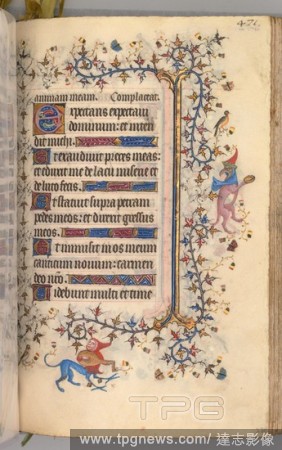 animam meam. Complaceat.
Expectans expectaui
dominum: et inten
dit michi.
Et exaudiuit preces meas:
et eduxit me de lacu miserie et
de luto fecis.
Et statuit supra petram
pedes meos: et direxit gressus
meos.
Et inmisit in os meum
canticum nouum: carmen
deo nr̃o.
Uidebunt multi et time
TPG
www.tpgnews.com/ 達志影像